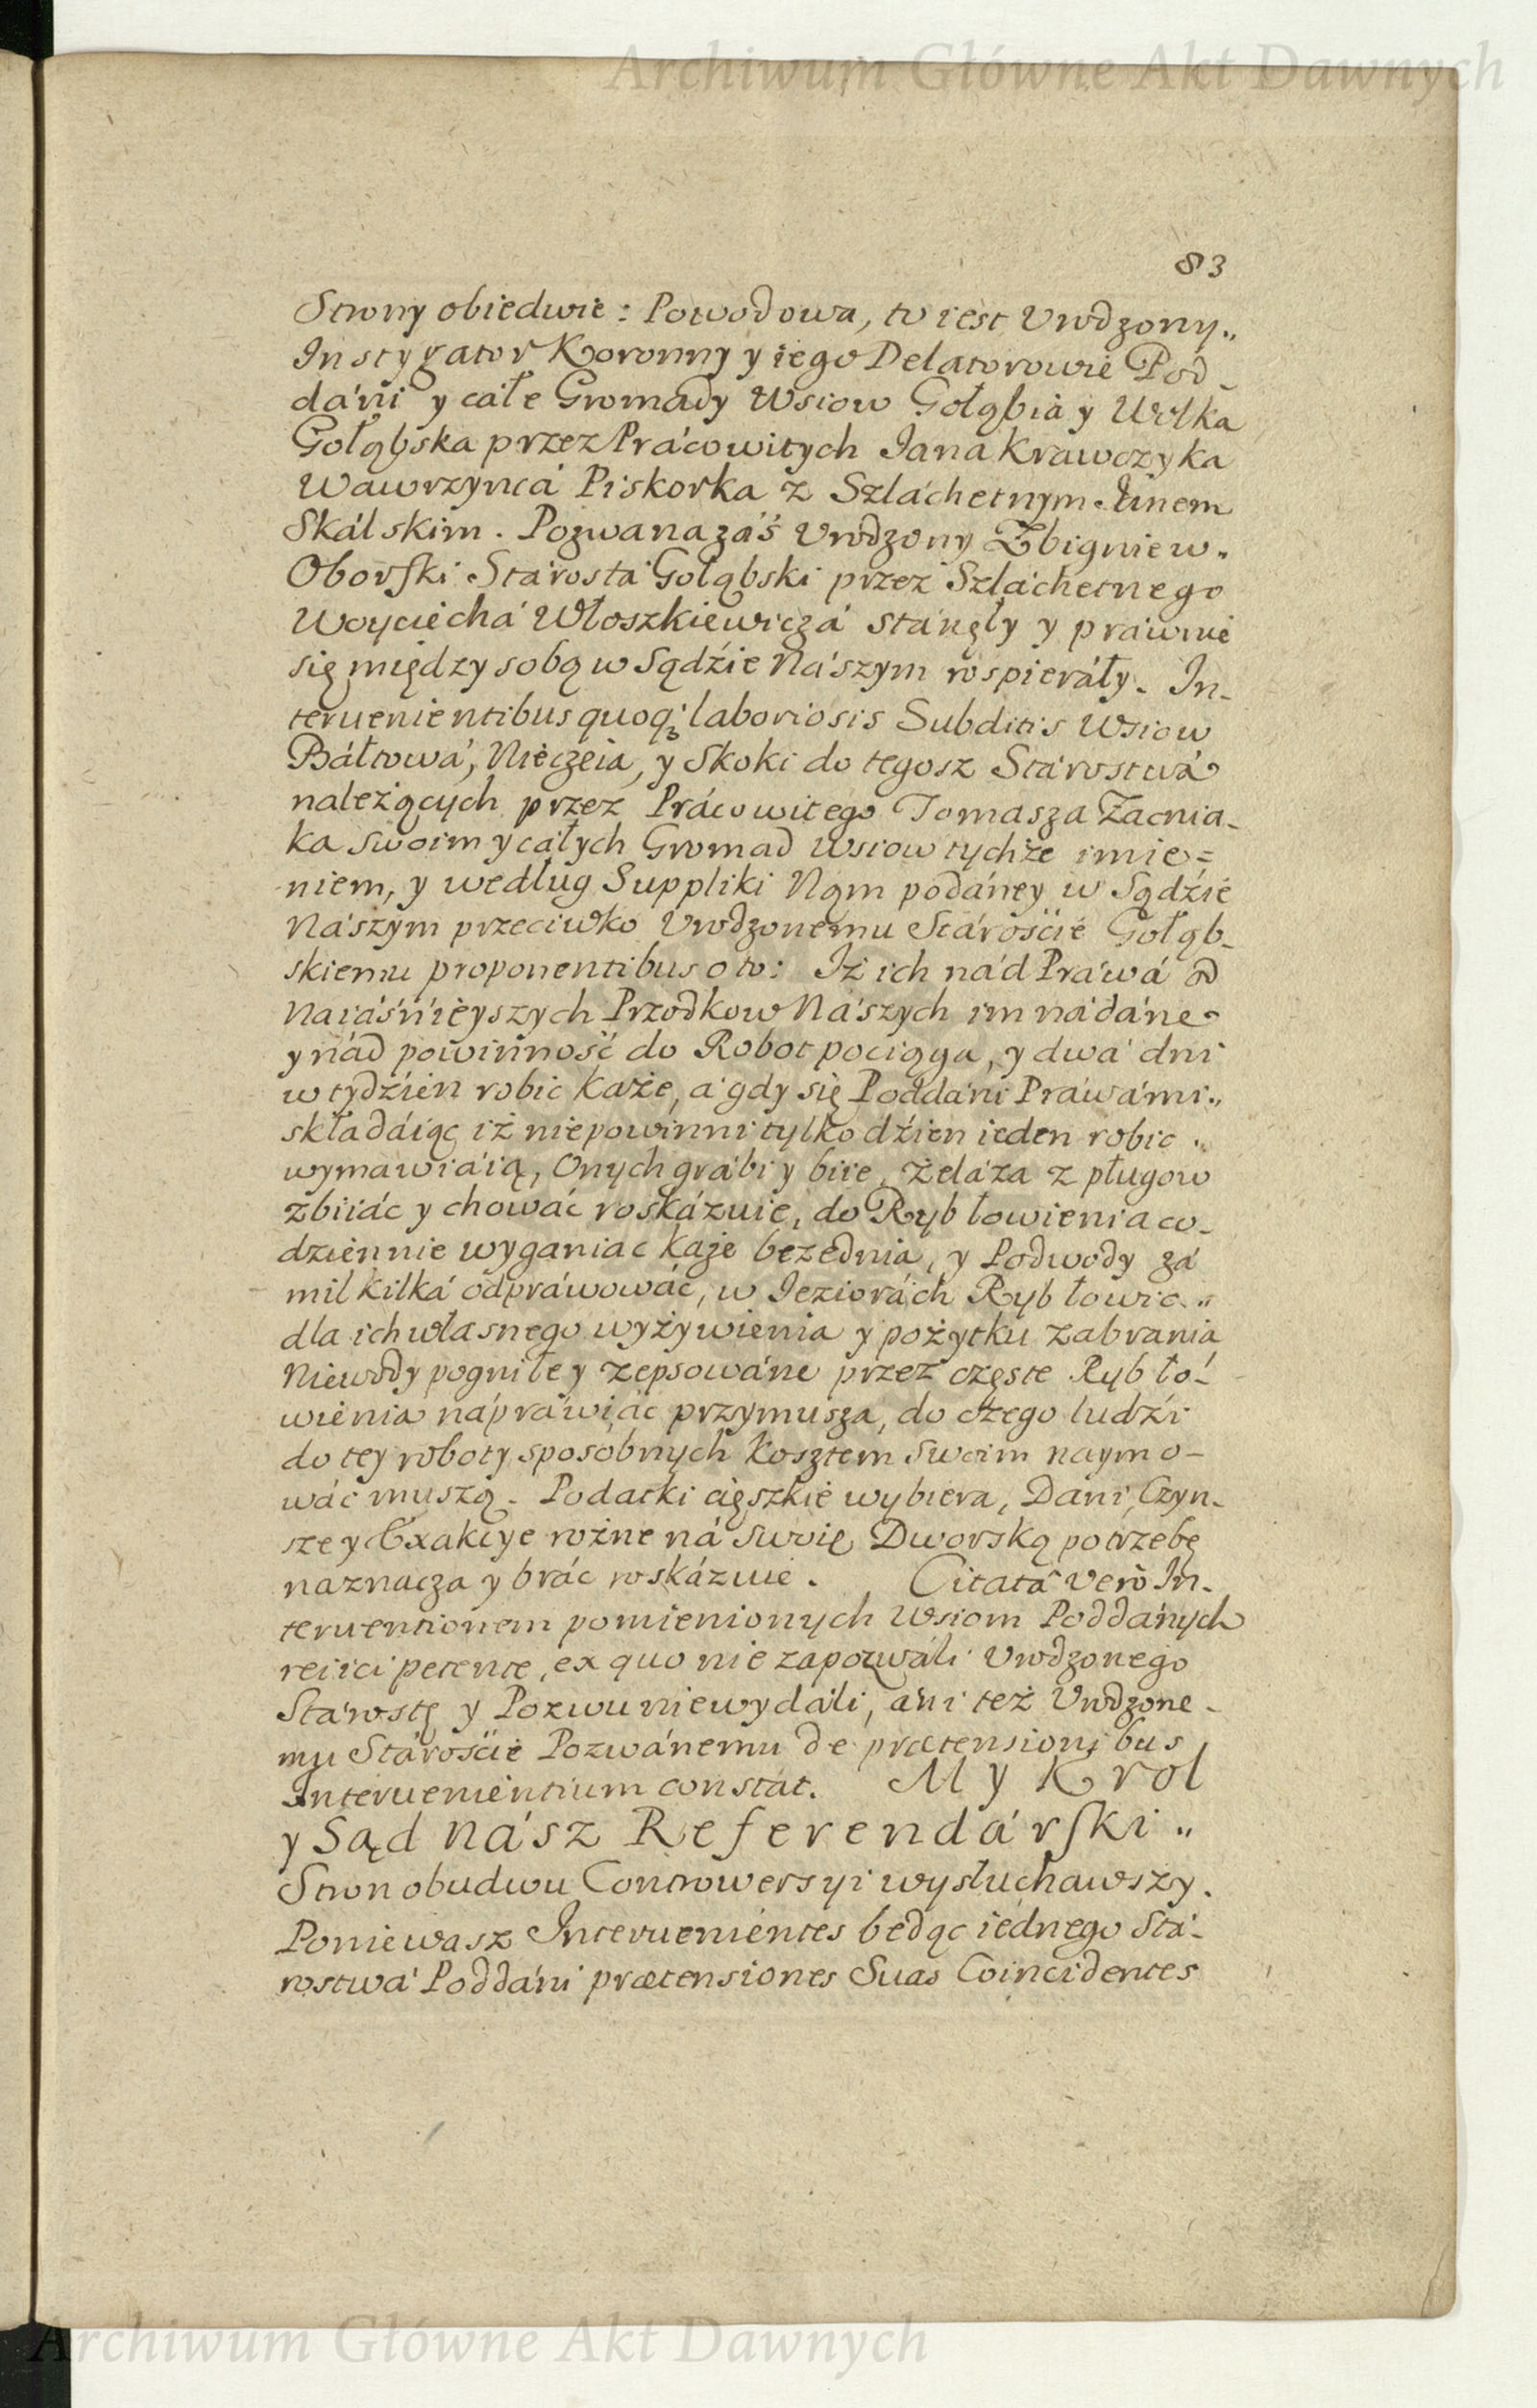 Archiwum Główne Akt Dawnych
83
Strony obiedwie : Powodowa, to iest Vrodzony„
Instygator Koronny y iego Delatorowie Pod-
dáni y całe Gromady Wsiow Gołąbia y Wolka
Gołąbska przez Prácowitych Iana Krawczyka
Wawrzyńcá Piskorka z Szláchetnym Janem
Skálskim. Pozwana záś Vrodzony Zbigniew„
Oborski Stárostá Gołąbski przez Szláchetnego
Woyciechá Włoszkiewiczá stánęły y práwnie
się między sobą w Sądźie Nászym rospieráły. In-
teruenientibus quoq; laboriosis Subditis Wsiow
Báłtowá, Nieczeia, y Skoki do tegosz Stárostwá
należących przez Prácowitego Tomasza Zacnia-
ka swoim y całych Gromad Wsiow tychże imie=
niem, y według Suppliki Nąm podáney w Sądźie
Nászym przeciwko Vrodzonemu Stárośćie Gołąb-
skiemu proponentibus o to: Iż ich nád Práwá od
Naiáśnieyszych Przodkow Nászych im nádáne
y nád powinność do Robot pociąga, y dwá dni
w tydźień robic każe, á gdy się Poddáni Práwámi„
składáiąc iż niepowinni tylko dźien ieden robic„
wymawiáią, Onych grábi y biie, żeláza z pługow
zbiiác y chowáć roskázuie, do Ryb łowienia co-
dziennie wyganiac każe bezednia, y Podwody zá
mil kilká odpráwowáć, w Ieziorách Ryb łowic„
dla ich własnego wyżywienia y pożytku zabrania
Niewody pogniłe y zepsowáne przez częste Ryb ło-
wienia nápráwiác przymusza, do czego ludźi
do tey roboty sposobnych kosztem swoim naymo-
wáć muszą. Podatki cięszkie wybiera, Dani, Czyn-
sze y Exakcye rożne ná swoię Dworską potrzebę
naznacza y bráć roskázuie. Citatâ verò In-
teruentionem pomienionych Wsiom Poddánych
reiici petente, ex quo nie zapozwáli Vrodzonego
Stárostę y Pozwu niewydáli, áni też Vrodzone-
mu Stárośćie Pozwánemu de prætensionibus
Interuenientium constat. My Krol
y Sąd nász Referendárski„
Stron obudwu Controwersyi wysłuchawszy.
Poniewasz Interuenientes bedąc iednego Stá-
rostwá Poddáni prætensiones Suas Coincidentes
Archiwum Główne Akt Dawnych